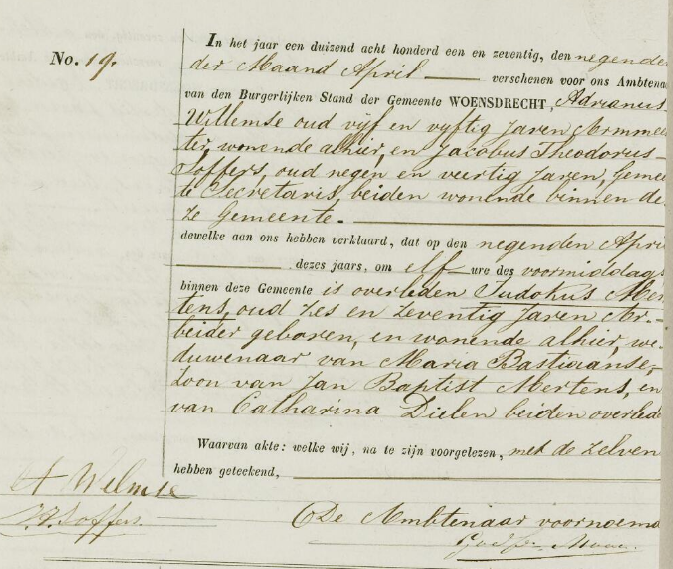 No. 19.
In het jaar een duizend acht honderd een en zeventig, den negende
der Maand April verschenen voor ons Ambtena
van den Burgerlijken Stand der Gemeente WOENSDRECHT, Adrianus
Willemse oud vijf en vijftig Jaren Armmee
ter, wonende alhier, en Jacobus Theodorus
Soffers, oud negen en veertig Jaren, Gemee
te Secretaris, beiden wonende binnen de
ze Gemeente.
dewelke aan ons hebben verklaard, dat op den negenden April
dezes jaars, om elf ure des voormiddags
binnen deze Gemeente is overleden Judokus Mer
tens, oud zes en zeventig Jaren Ar-
beider geboren, en wonende alhier, we-
duwenaar van Maria Bastiaanse,
zoon van Jan Baptist Mertens, en
van Catharina Dielen beiden overlede
Waarvan akte: welke wij, na te zijn voorgelezen, met de zelven
hebben geteekend,
A Welmse
Soffers.
De Ambtenaar voornoemd